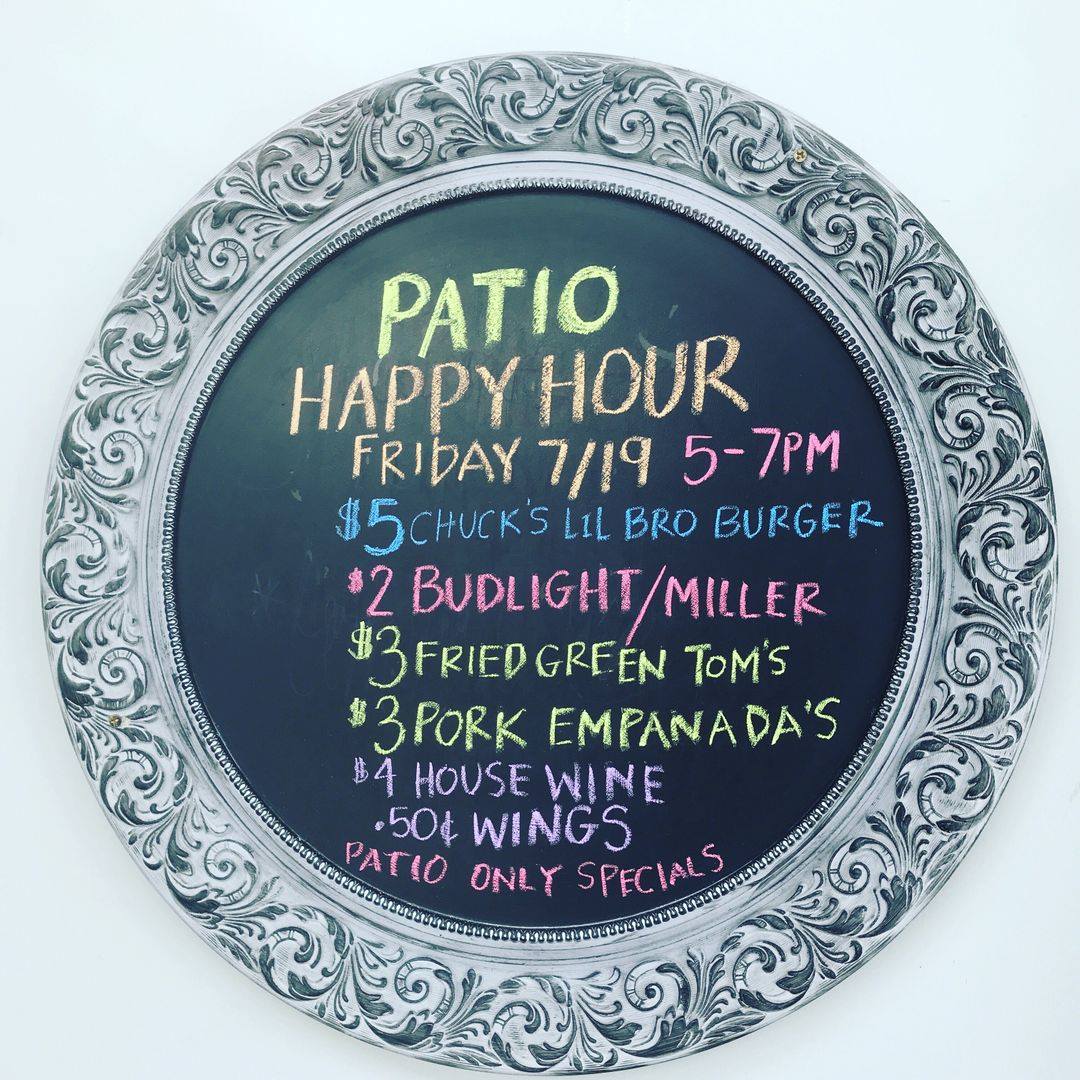 PATIO
HAPPY HOUR
FRIDAY 7/19 5-7PM
$5 CHUCK'S LIL BRO BURGER
$2 BUDLIGHT/MILLER
$3 FRIED GREEN TOM'S
$3 PORK EMPANADA'S
$4 HOUSE WINE
.50¢ WINGS
PATIO ONLY SPECIALS